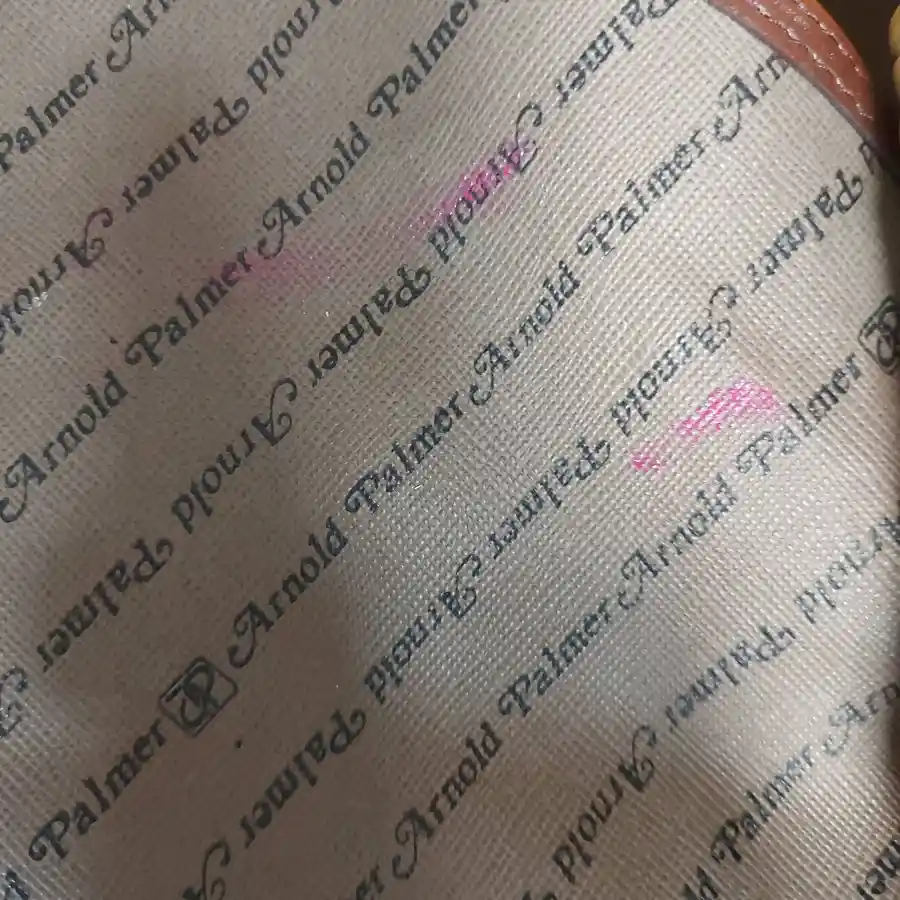 Palmer Arn
Arnold Palmer Arnold
Arnold Palmer Arnold Palmer
Palmer Arnold Palmer Arnold Palmer
Palmer Arnold Palmer Arnold Palmer Arn
Palmer Arnold Palmer Arnold Palmer
er Arnold Palmer Arnold Palmer
Arnold Palmer Arnold
ld Palmer Arn